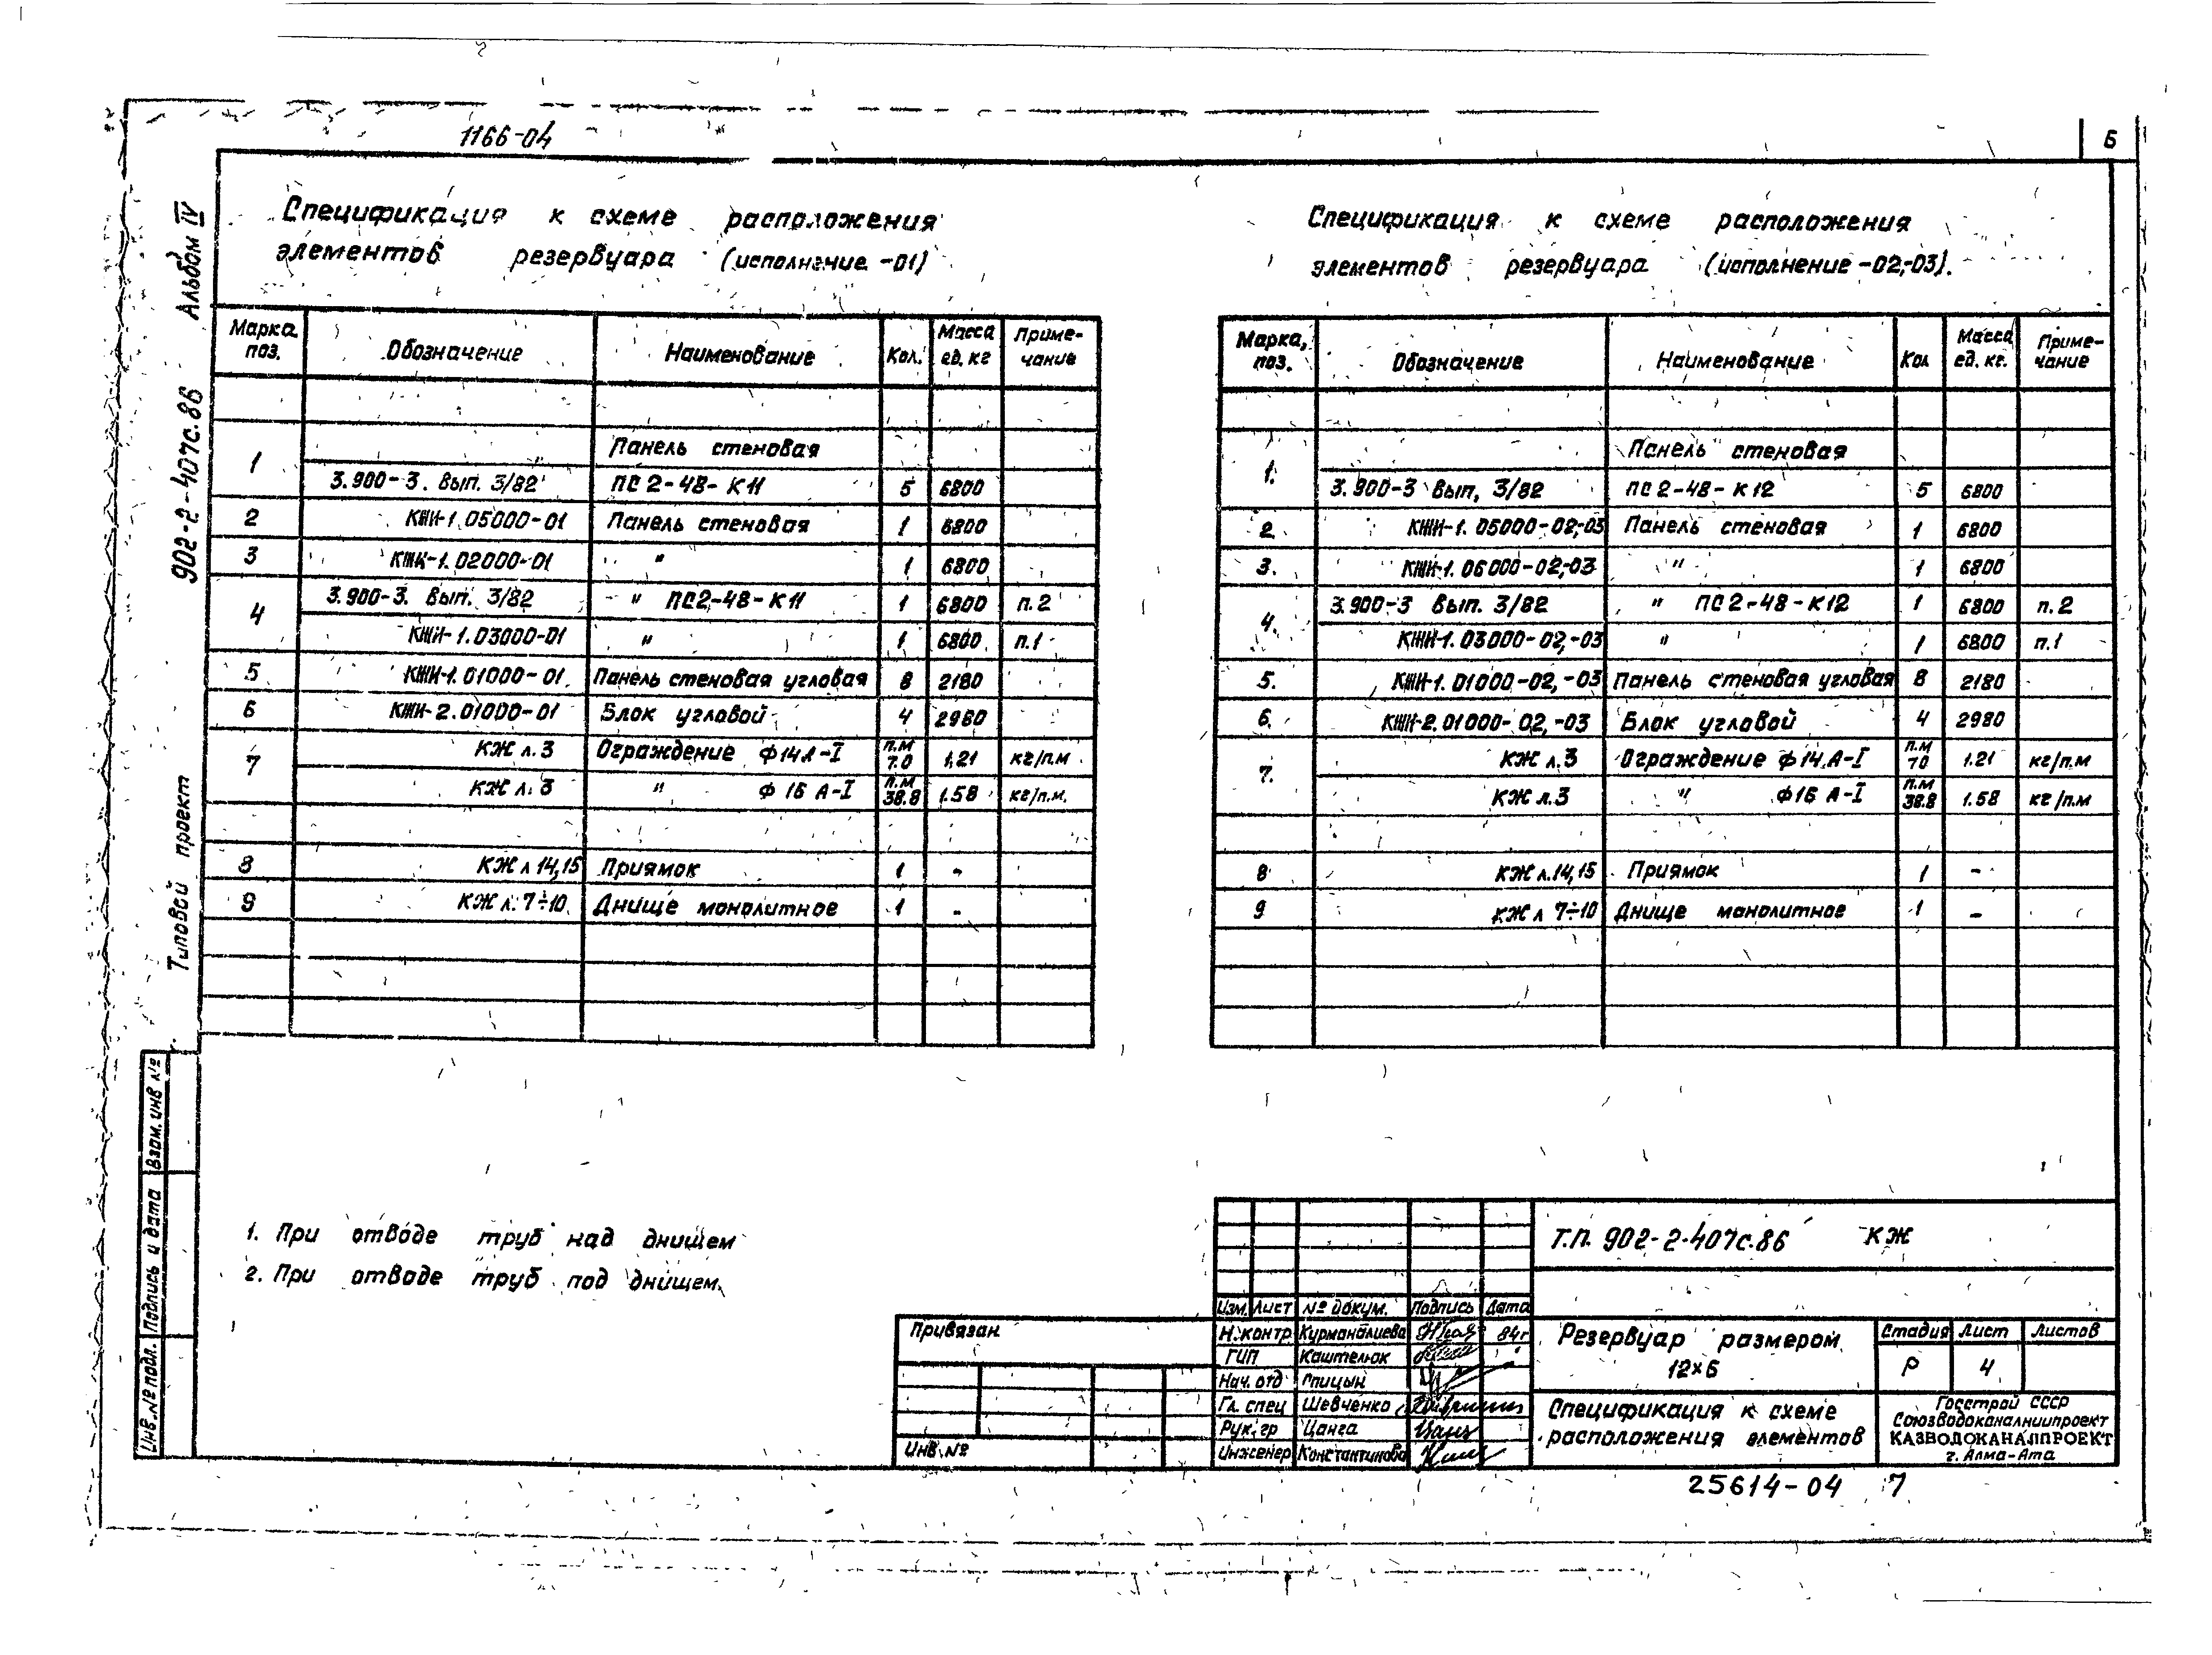 1166-04
6
Альбом IV
902-2-407с.86
Типовой проект
Взам. инв №
Подпись и дата
Инв. № подл.
Спецификация к схеме расположения
элементов резервуара (исполнение -01)
Марка поз. Обозначение Наименование Кол. Масса ед. кг Приме-чание
Панель стеновая
1 3.900-3. Вып. 3/82 ПС 2-48-К11 5 6800
2 КЖИ-1.05000-01 Панель стеновая 1 6800
3 КЖИ-1.02000-01 " 1 6800
4 3.900-3. Вып. 3/82 " ПС2-48-К11 1 6800 п.2
КЖИ-1.03000-01 " 1 6800 п.1
5 КЖИ-1.01000-01 Панель стеновая угловая 8 2180
6 КЖИ-2.01000-01 Блок угловой 4 2980
7 КЖ л.3 Ограждение ф14А-I п.м 7.0 1.21 кг/п.м
КЖ л.3 " ф 16 А-I п.м 38.8 1.58 кг/п.м.
8 КЖ л 14,15 Приямок 1 -
9 КЖ л. 7÷10 Днище монолитное 1 -
Спецификация к схеме расположения
элементов резервуара (исполнение -02;-03).
Марка, поз. Обозначение Наименование Кол Масса ед. кг. Приме-чание
Панель стеновая
1. 3.900-3 Вып, 3/82 ПС 2-48-К12 5 6800
2 КЖИ-1.05000-02;-03 Панель стеновая 1 6800
3. КЖИ-1.06000-02;-03 " 1 6800
4. 3.900-3 Вып. 3/82 " ПС 2-48-К12 1 6800 п.2
КЖИ-1.03000-02,-03 " 1 6800 п.1
5. КЖИ-1.01000-02,-03 Панель стеновая угловая 8 2180
6. КЖИ-2.01000-02,-03 Блок угловой 4 2980
7. КЖ л.3 Ограждение ф14.А-I п.м 70 1.21 кг/п.м
КЖ л.3 " ф16 А-I п.м 38.8 1.58 кг/п.м
8 КЖ л.14,15 Приямок 1 -
9 КЖ л 7÷10 Днище монолитное 1 -
1. При отводе труб над днищем
2. При отводе труб под днищем.
Привязан
Инв. №
Изм. Лист № докум. Подпись Дата
Н.контр Курманалиева 84г
ГИП Каштелюк
Нач. отд Спицын
Гл. спец Шевченко
Рук. гр Цанга
Инженер Константинова
Т.П. 902-2-407с.86 КЖ
Резервуар размером
12×6
Стадия Лист Листов
Р 4
Спецификация к схеме
расположения элементов
Госстрой СССР
Союзводоканалниипроект
КАЗВОДОКАНАЛПРОЕКТ
г. Алма-Ата
25614-04 7